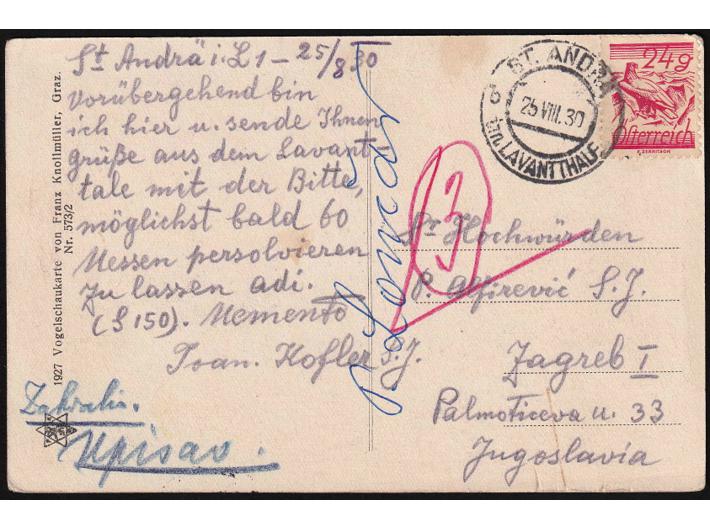 St Andrä i. L 1 - 25/8 30
Vorübergehend bin
ich hier u. sende Ihnen
grüße aus dem Lavant
tale mit der Bitte,
möglichst bald 60
Messen persolvieren
zu lassen adi.
(S 150). Memento
Joan. Hofler S. J.
Zahvalio.
Upisao.
1927 Vogelschaukarte von Franz Knollmüller, Graz.
Nr. 573/2
3
ST. ANDRÄ
25 VIII. 30
im LAVANTTHALE
b
24g
Österreich
Sr Hochwürden
P. Alfirević S. J.
Zagreb I
Palmotićeva u. 33
Jugoslavia